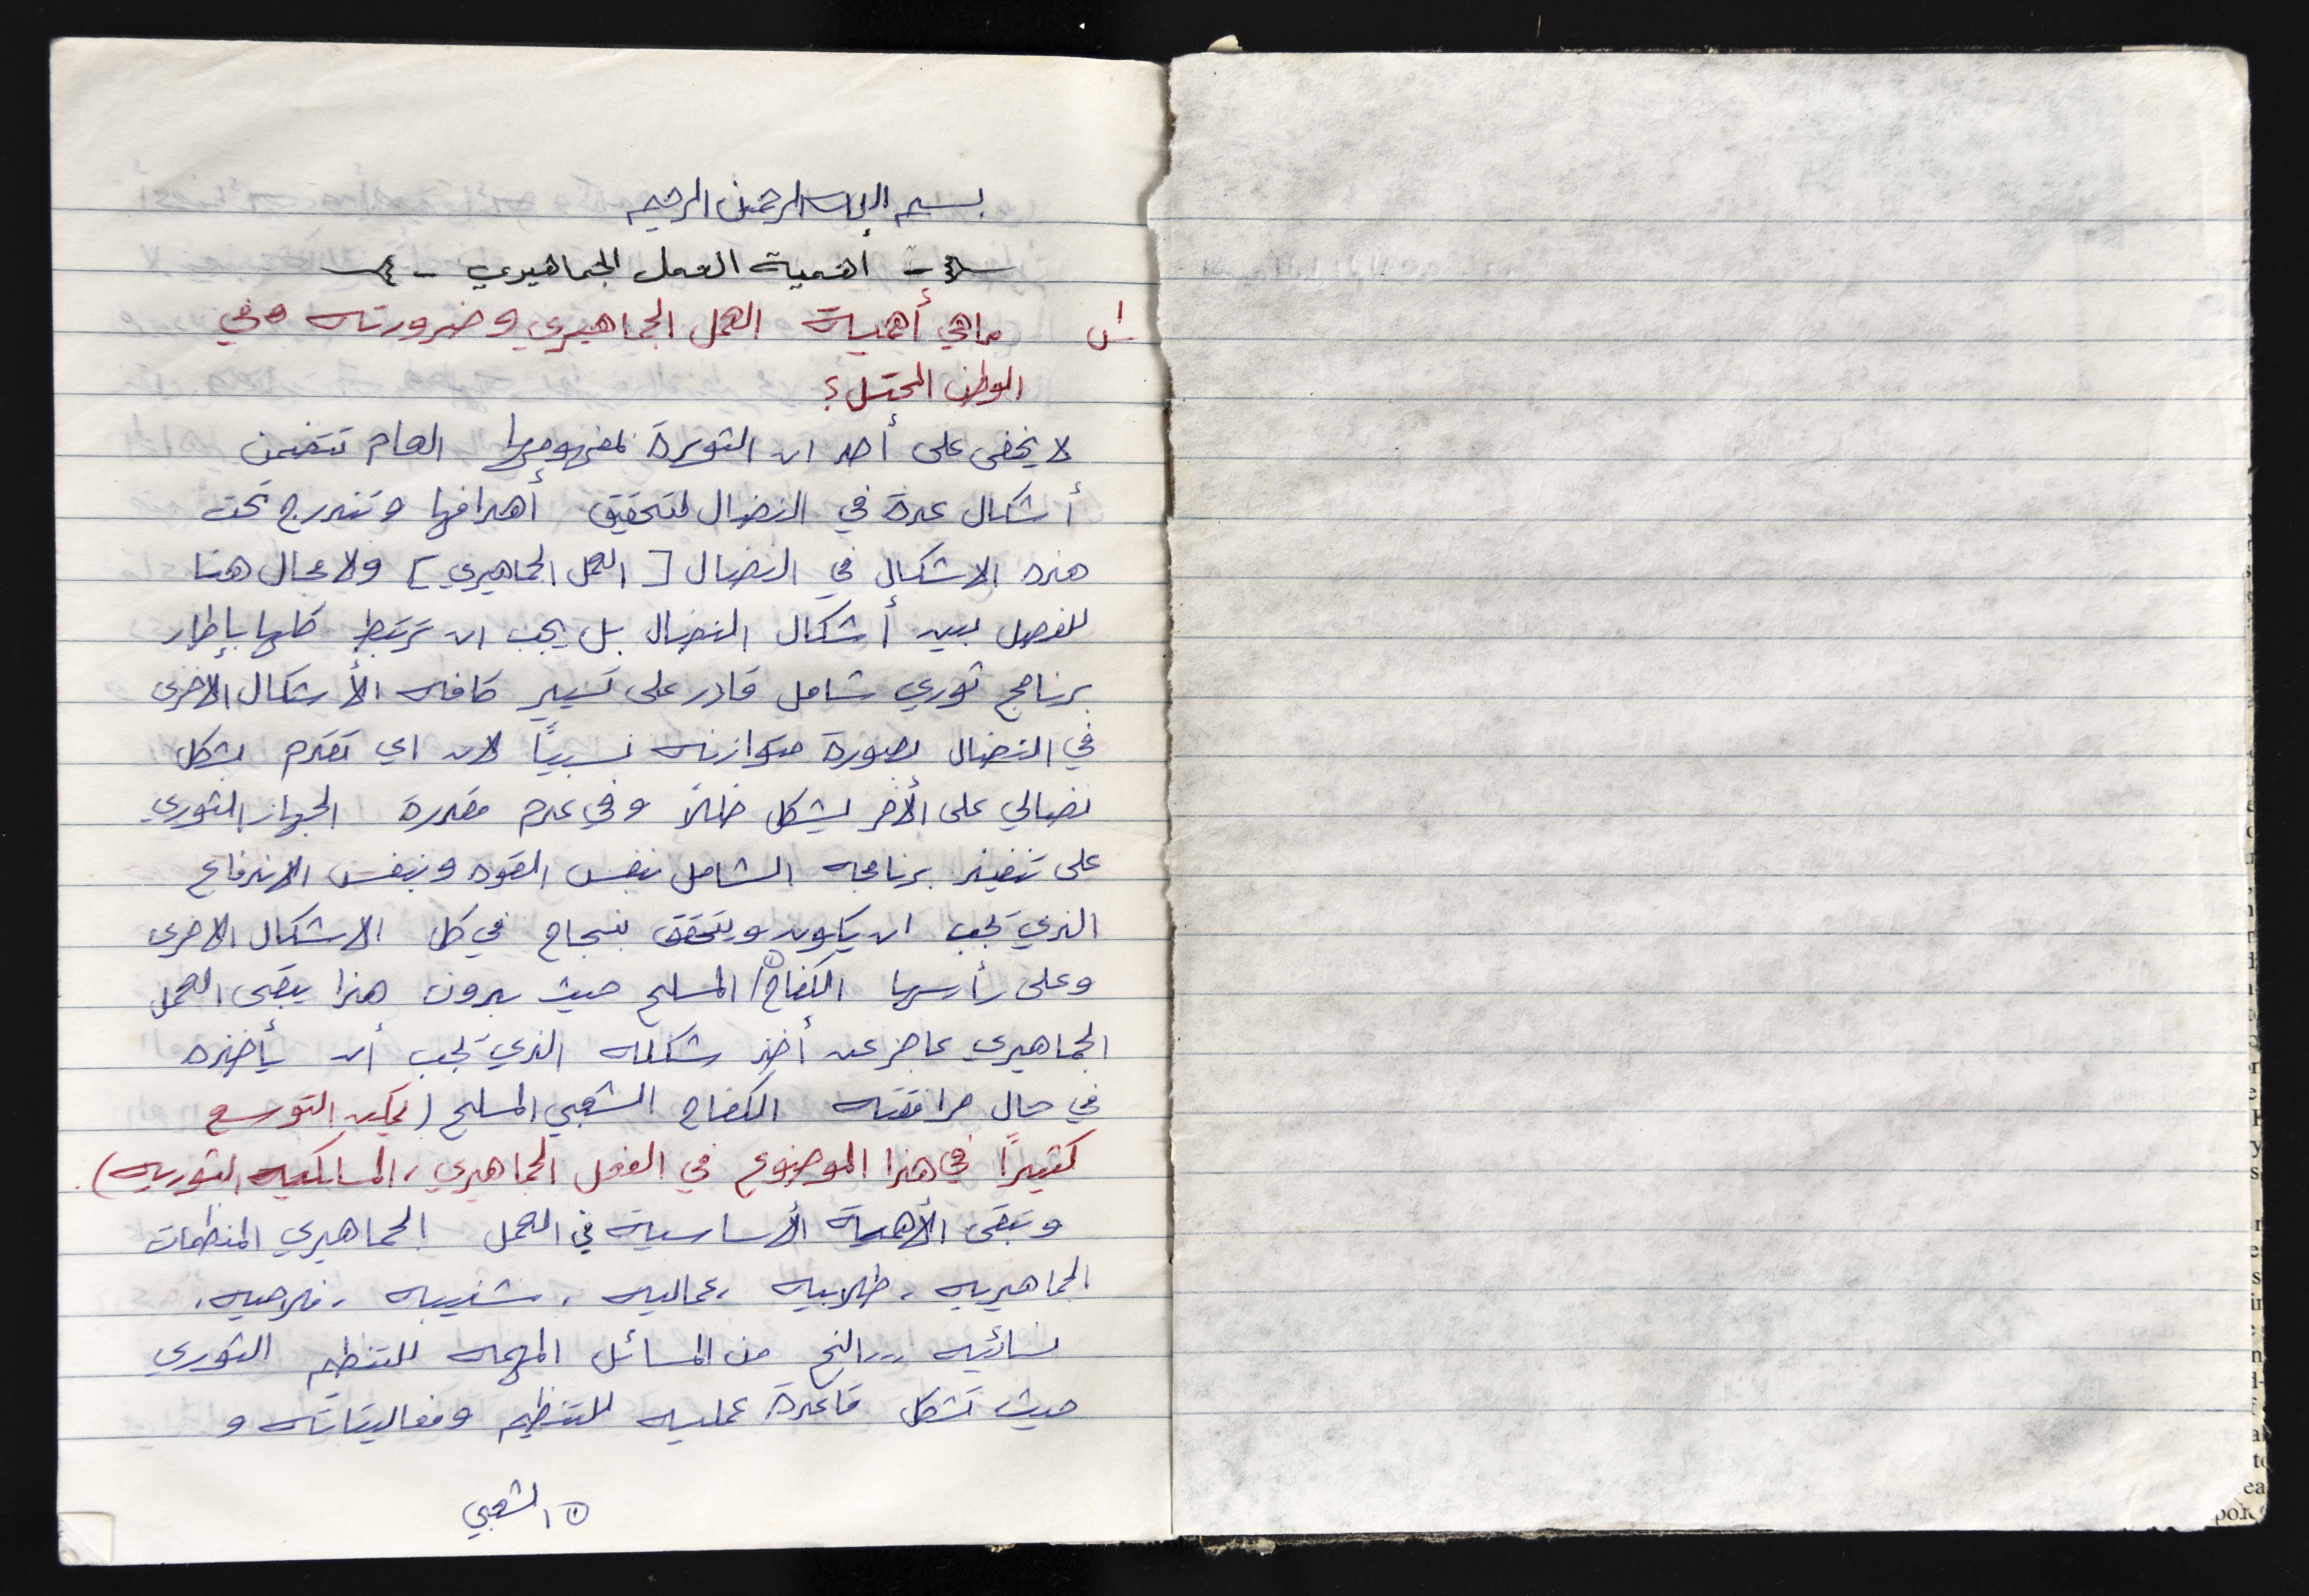 بسم الله الرحمن الرحيم
- أهمية العمل الجماهيري -
س١ ماهي أهمية العمل الجماهيري وضرورته في
الوطن المحتل؟
لا يخفى على أحد ان الثورة بمفهومها العام تتضمن
أشكال عدة في النضال لتحقيق أهدافها وتندرج تحت
هذه الاشكال في النضال [العمل الجماهيري] ولا مجال هنا
للفصل بين أشكال النضال بل يجب ان ترتبط كلها بإطار
برنامج ثوري شامل قادر على تسيير كافه الأشكال الاخرى
في النضال بصورة متوازنه نسبياً لان اي تقدم بشكل
نضالي على الأخر يشكل خللاً وفي عدم مقدرة الجهاز الثوري
على تنفيذ برنامجه الشامل بنفس القوه وبنفس الاندفاع
الذي يجب ان يكون ويتحقق بنجاح في كل الاشكال الاخرى
وعلى رأسها الكفاح ①/ المسلح حيث بدون هذا يبقى العمل
الجماهيري عاجز عن أخذ شكله الذي يجب أن يأخذه
في حال مرافقته الكفاح الشعبي المسلح (يمكن التوسع
كثيراً في هذا الموضوع في العمل الجماهيري، المسلكيه الثوريه).
وتبقى الأهمية الأساسية في العمل الجماهيري المنظمات
الجماهيريه، طلابيه، عماليه، شبيبيه، فلاحيه،
نسائيه ...الخ من المسائل المهمه للتنظيم الثوري
حيث تشكل قاعدة عمليه للتنظيم وفعالياته و
① الشعبي